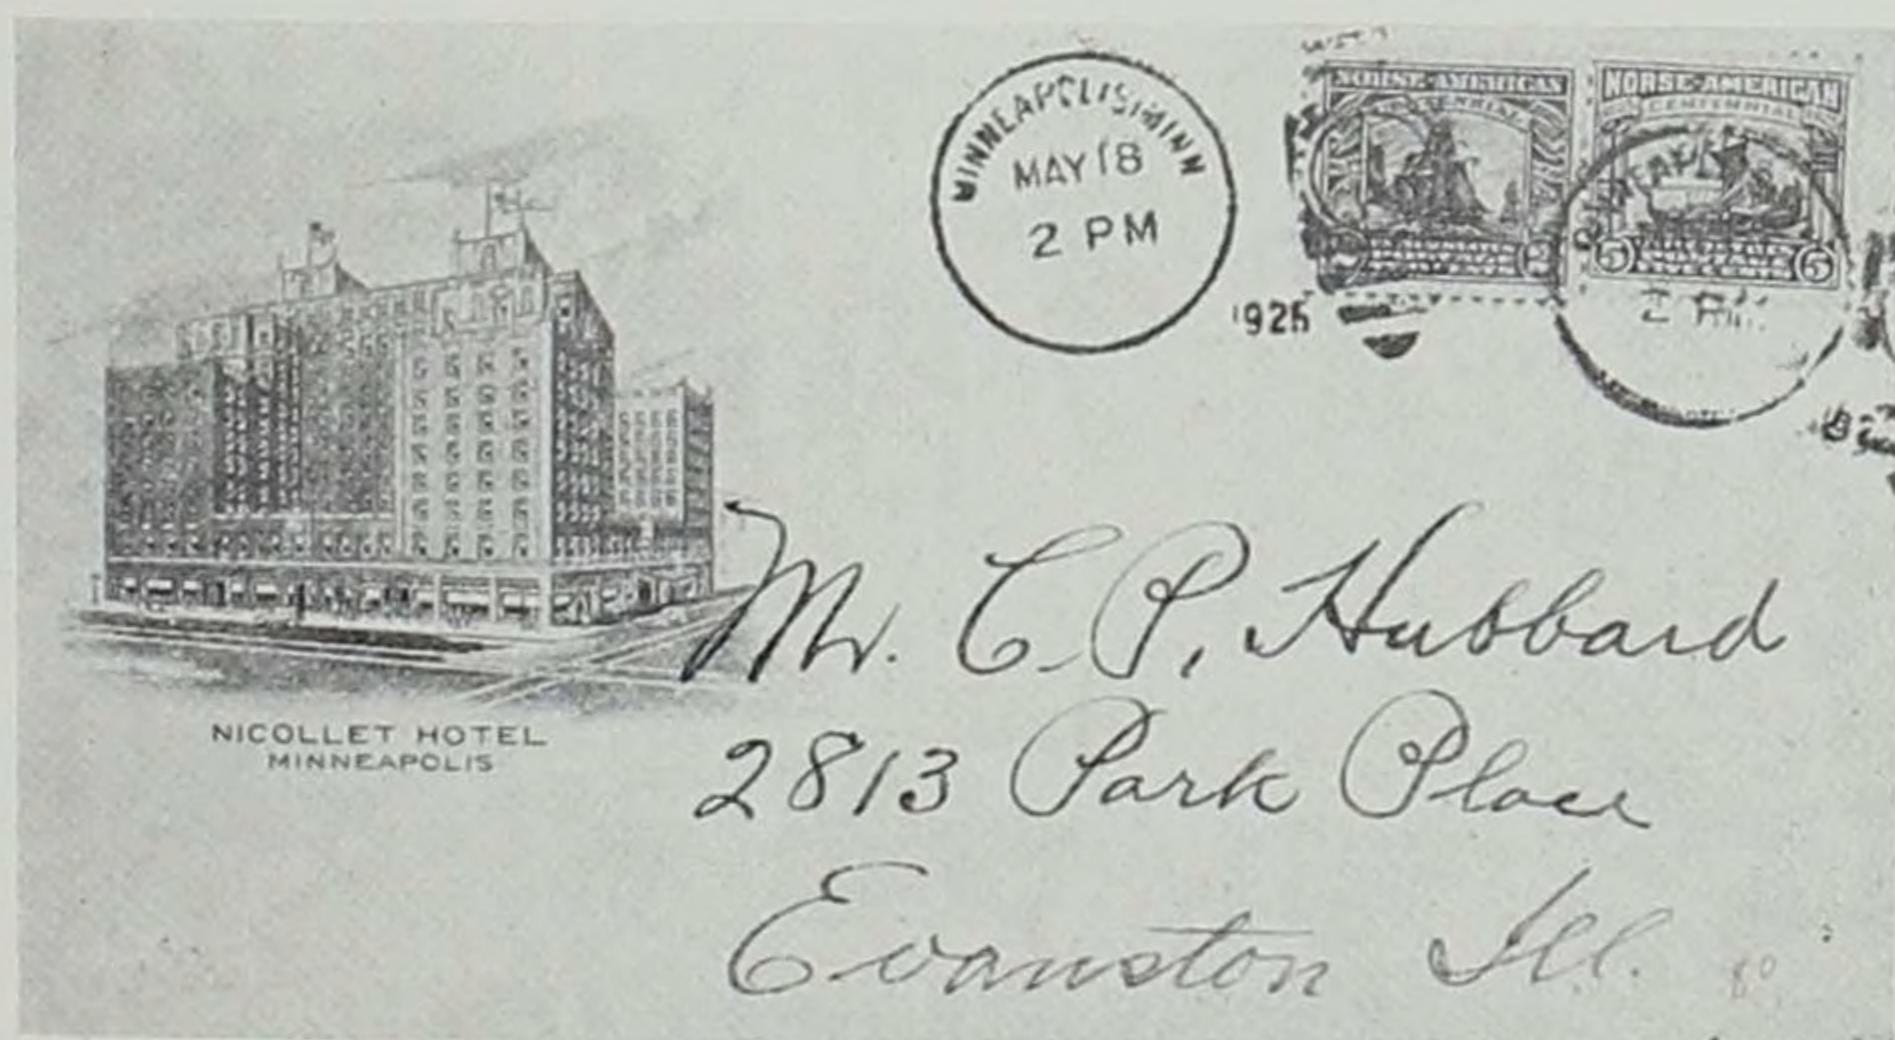 MINNEAPOLIS, MINN
MAY 18
2 PM
1925
NORSE-AMERICAN
CENTENNIAL
2 2
NORSE-AMERICAN
CENTENNIAL
5 5
2 PM
NICOLLET HOTEL
MINNEAPOLIS
Mr. C. P. Hubbard
2813 Park Place
Evanston Ill.